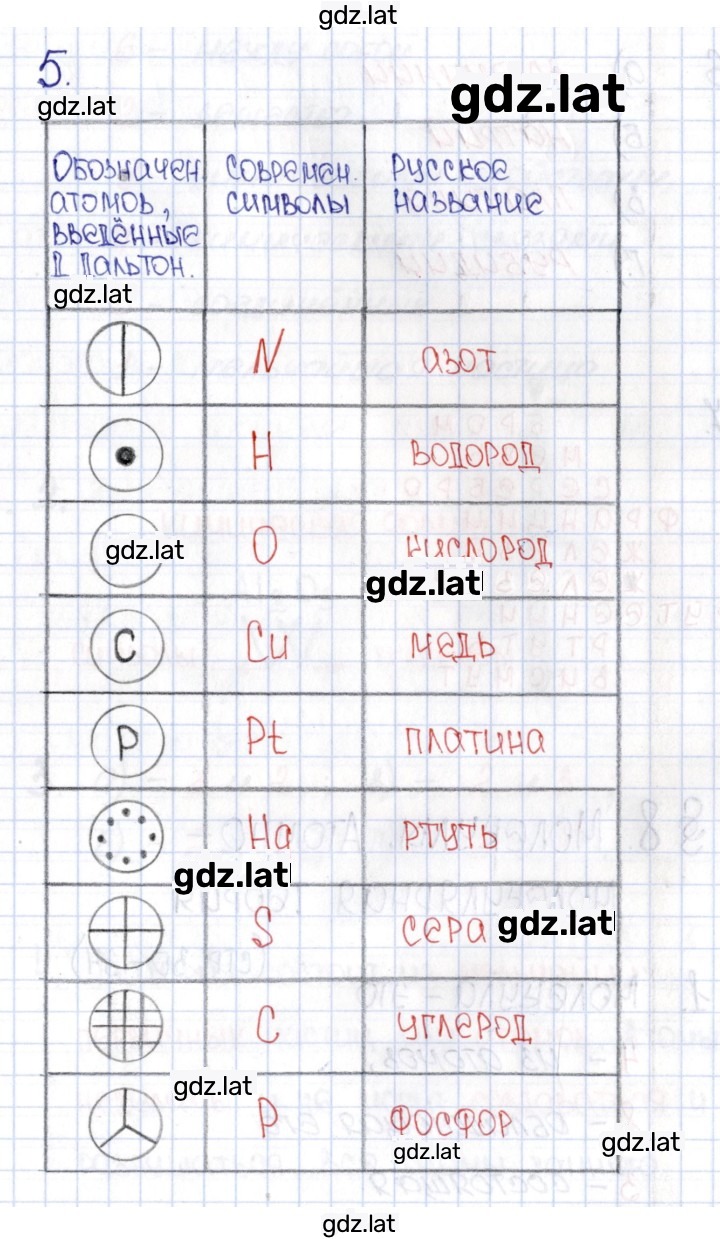 gdz.lat
5.
gdz.lat
gdz.lat
Обозначен. Современ. Русское
атомов, символы название
введённые
Д Дальтон.
gdz.lat
N азот
H водород
gdz.lat O кислород
gdz.lat
C Cu медь
P Pt платина
Ha ртуть
gdz.lat
S сера gdz.lat
C углерод
gdz.lat
P фосфор
gdz.lat
gdz.lat
gdz.lat